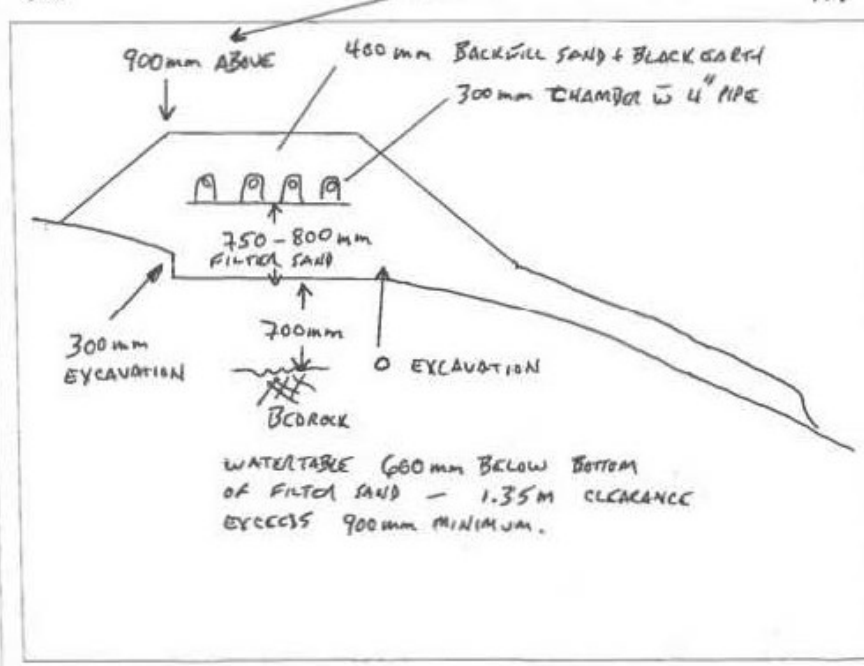 900mm ABOVE
400mm BACKFILL SAND & BLACK EARTH
300mm CHAMBER w 4" PIPE
750-800mm
FILTER SAND
700mm
300mm
EXCAVATION
O EXCAVATION
BEDROCK
WATERTABLE 600mm BELOW BOTTOM
OF FILTER SAND - 1.35m CLEARANCE
EXCEEDS 900mm MINIMUM.